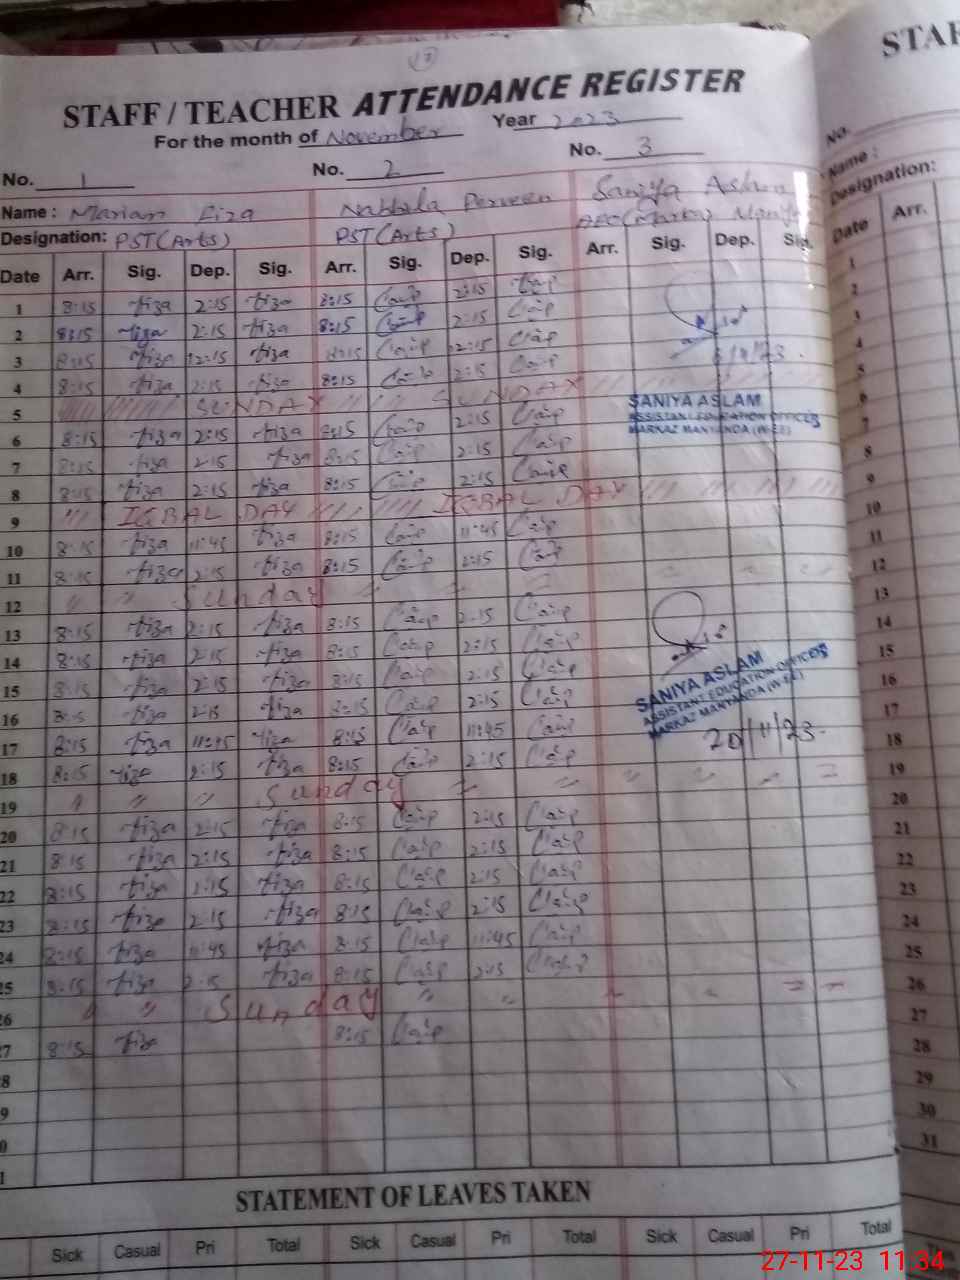 17
STAFF / TEACHER ATTENDANCE REGISTER
STAF
For the month of November Year 2023
No. 1 No. 2 No. 3
No.
Name : Mariam Fiza Nabbila Perveen Saniya Aslam
Name :
Designation: PST (Arts) PST (Arts) AEO (Markaz)
Designation:
Date Arr. Sig. Dep. Sig. Arr. Sig. Dep. Sig. Arr. Sig. Dep. Sig.
Date Arr.
1 8:15 Fiza 2:15 Fiza 8:15 2:15
2 8:15 Fiza 2:15 Fiza 8:15 2:15
3 8:15 Fiza 12:15 Fiza 8:15 12:15
4 8:15 Fiza 2:15 Fiza 8:15 2:15
5 SUNDAY SUNDAY
SANIYA ASLAM
ASSISTANT EDUCATION OFFICER
MARKAZ MANYANDA (W-EE)
6 8:15 Fiza 2:15 Fiza 8:15 2:15
7 8:15 Fiza 2:15 Fiza 8:15 2:15
8 8:15 Fiza 2:15 Fiza 8:15 2:15
9 IQBAL DAY IQBAL DAY
10 8:15 Fiza 11:45 Fiza 8:15 11:45
11 8:15 Fiza 2:15 Fiza 8:15 2:15
12 " " Sunday
13 8:15 Fiza 2:15 Fiza 8:15 2:15
14 8:15 Fiza 2:15 Fiza 8:15 2:15
15 8:15 Fiza 2:15 Fiza 8:15 2:15
SANIYA ASLAM
ASSISTANT EDUCATION OFFICER
MARKAZ MANYANDA (W-EE)
16 8:15 Fiza 2:15 Fiza 8:15 2:15
17 8:15 Fiza 11:45 Fiza 8:15 11:45
20/11/23
18 8:15 Fiza 2:15 Fiza 8:15 2:15
19 " " " Sunday
20 8:15 Fiza 2:15 Fiza 8:15 2:15
21 8:15 Fiza 2:15 Fiza 8:15 2:15
22 8:15 Fiza 2:15 Fiza 8:15 2:15
23 8:15 Fiza 2:15 Fiza 8:15 2:15
24 8:15 Fiza 11:45 Fiza 8:15 11:45
25 8:15 Fiza 2:15 Fiza 8:15 2:15
26 " " Sunday " "
27 8:15 Fiza 8:15
8
9
0
1
1
2
3
4
5
6
7
8
9
10
11
12
13
14
15
16
17
18
19
20
21
22
23
24
25
26
27
28
29
30
31
STATEMENT OF LEAVES TAKEN
Sick Casual Pri Total Sick Casual Pri Total Sick Casual Pri Total
27-11-23 11:34